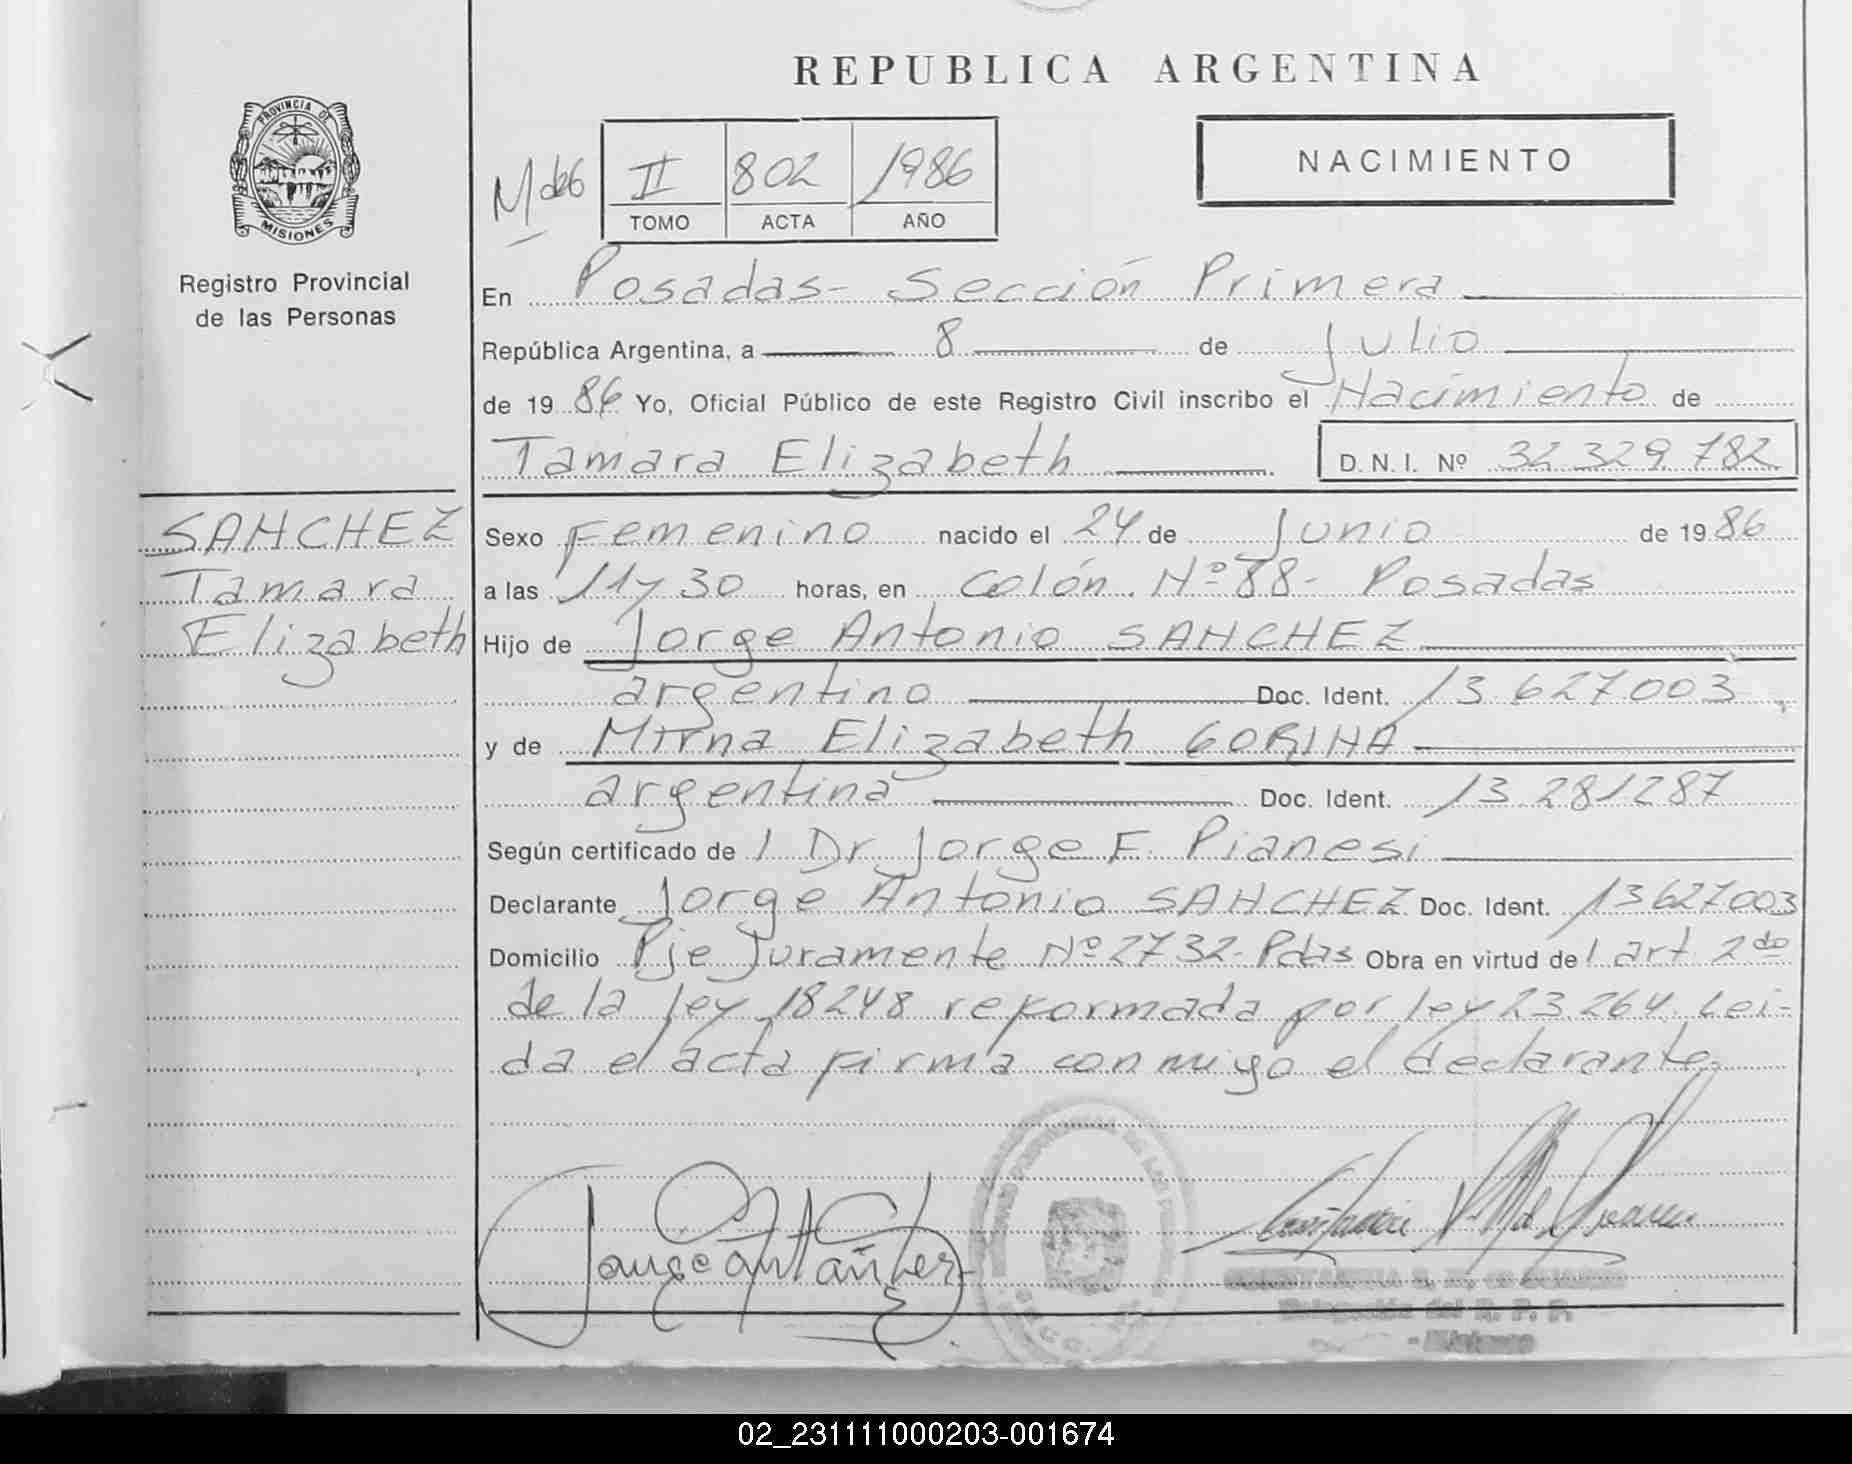 REPUBLICA ARGENTINA
PROVINCIA DE
MISIONES
Registro Provincial
de las Personas
NACIMIENTO
II 802 1986
TOMO ACTA AÑO
En Posadas- Sección Primera
República Argentina, a 8 de Julio
de 1986 Yo, Oficial Público de este Registro Civil inscribo el Nacimiento de
Tamara Elizabeth D.N.I. Nº 32 329 782
SANCHEZ
Tamara
Elizabeth
Sexo Femenino nacido el 24 de Junio de 1986
a las 11y 30 horas, en Colón Nº 88- Posadas
Hijo de Jorge Antonio SANCHEZ
argentino Doc. Ident. 13 627003
y de Mirna Elizabeth GORINA
argentina Doc. Ident. 13 281287
Según certificado de l Dr Jorge E. Pianesi
Declarante Jorge Antonio SANCHEZ Doc. Ident. 13627003
Domicilio Pje Juramente Nº 2732- Pdas Obra en virtud del art 2do
de la ley 18248 reformada por ley 23.264. Lei-
da el acta firma conmigo el declarante
02_231111000203-001674